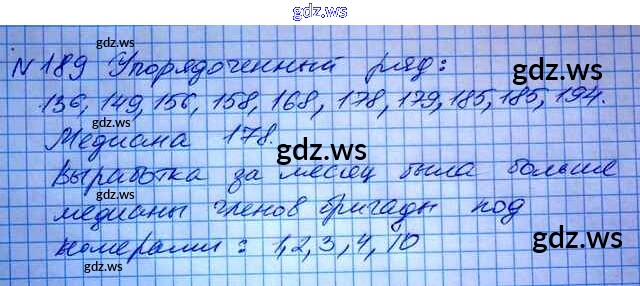 gdz.ws
N 189 Упорядоченный ряд:
gdz.ws
gdz.ws
136, 149, 156, 158, 168, 178, 179, 185, 185, 194.
gdz.ws
gdz.ws
Медиана 178.
gdz.ws
Выработка за месяц была больше
gdz.ws
медианы членов бригады под
gdz.ws
номерами: 1,2,3,4,10
gdz.ws
gdz.ws